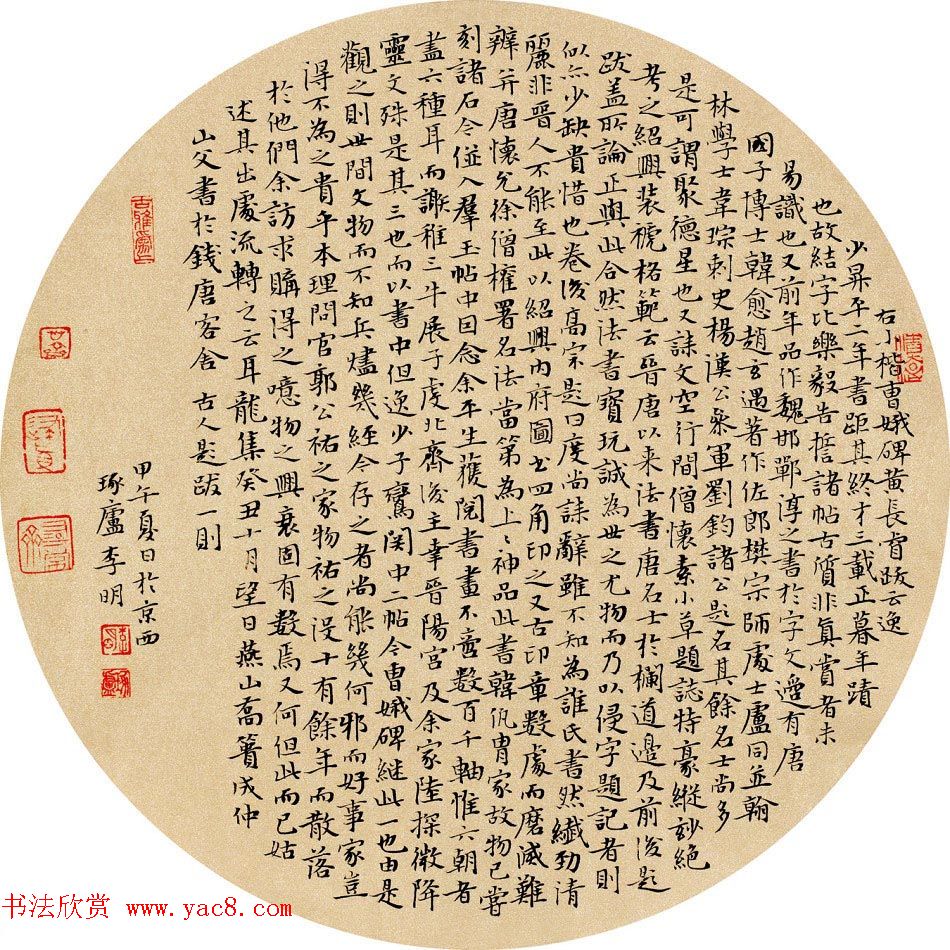 右小楷曹娥碑黄長睿跋云逸
少昇平二年書距其終才三載正暮年蹟
也故結字比樂毅告誓諸帖古質非真賞者未
易識也又前年品作魏邯鄲淳之書於字文邊有唐
國子博士韓愈趙玄遇著作佐郎樊宗師處士盧同並翰
林學士韋琮刺史楊漢公參軍劉鈞諸公題名其餘名士尚多
是可謂聚德星也又誄文空行間僧懷素小草題誌特豪縱妙絶
考之紹興裝褫格範云晉唐以来法書唐名士於欄道邊及前後題
跋盖所論正與此合然法書寶玩誠為世之尤物而乃以侵字題記者則
似亦少缺貴惜也卷後高宗題曰度尚誄辭雖不知為誰氏書然纎勁清
麗非晉人不能至此以紹興内府圖書四角印之又古印章數處而磨滅難
辨并唐懷充徐僧權署名法當第為上上神品此書韓侂胄家故物已嘗
刻諸石今併入羣玉帖中因念余平生獲閲書畫不啻數百千軸惟六朝者
盖六種耳而謝稚三牛展子虔北齊後主幸晉陽宮及余家陸探微降
靈文殊是其三也而以書中但逸少子鸞関中二帖今曹娥碑継此一也由是
觀之則世間文物而不知兵燼幾経今存之者尚能幾何邪而好事家豈
得不為之貴乎本理問官郭公祐之家物祐之没十有餘年而散落
於他們余訪求購得之噫物之興衰固有數焉又何但此而已姑
述其出處流轉之云耳龍集癸丑十月望日燕山喬簣成仲
山父書於錢唐客舍 古人題跋一則
甲午夏日於京西
琢廬李明
书法欣赏 www.yac8.com